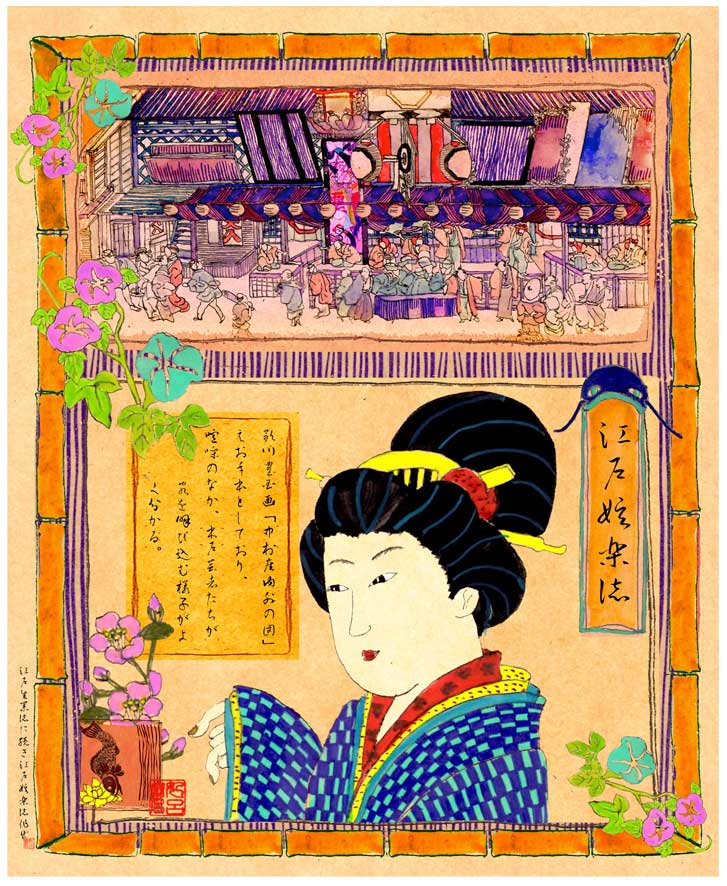 江戸娯楽誌
歌川豊国画「中村座内外の図」
をお手本としており、
喧噪のなか、木戸芸者たちが
客を呼び込む様子がよ
く分かる。
江戸生業誌に続き江戸娯楽誌